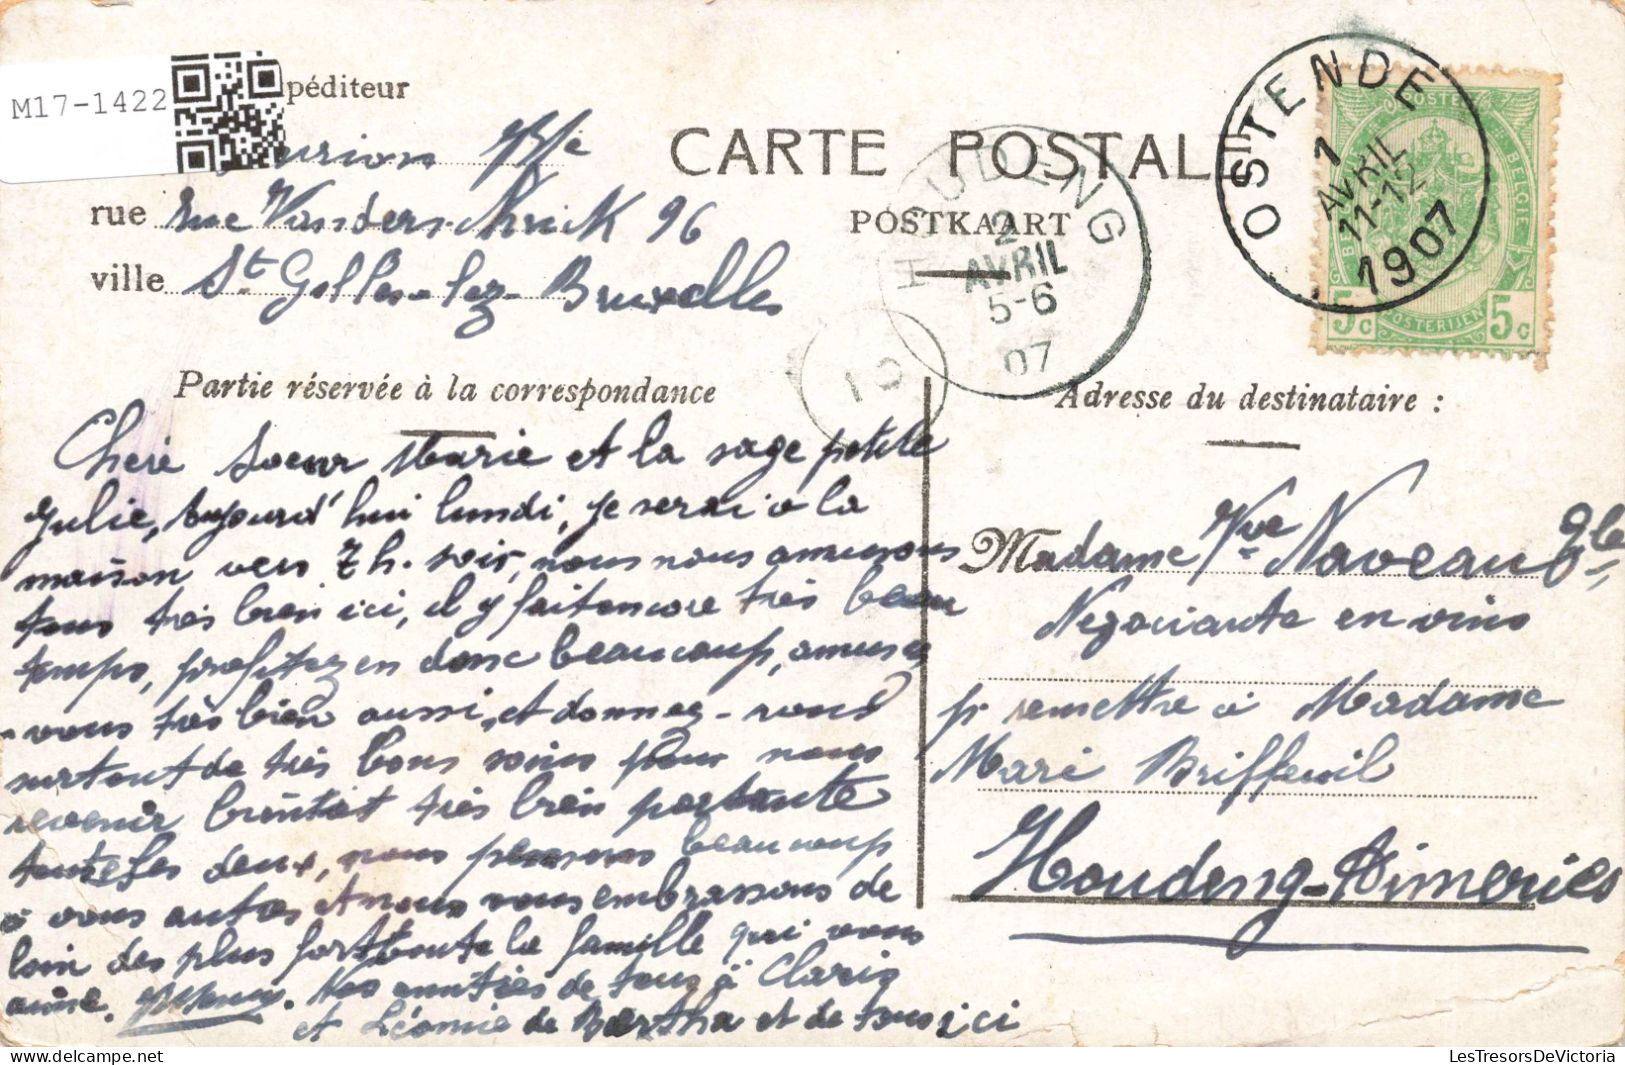 M17-1422
péditeur
CARTE POSTALE
POSTKAART
rue Rue Vanderschrick 96
ville St Gilles-lez-Bruxelles
HOUDENG
2
AVRIL
5-6
07
OSTENDE
1
AVRIL
11-12
1907
POSTES
BELGIE
POSTERIJEN
5c 5c
Partie réservée à la correspondance
Chère Soeur Marie et la sage petite
Julie, Aujourd'hui lundi, je serai à la
maison vers 7 h. soir, nous nous amusons
tous très bien ici, il y fait encore très beau
temps, profitez en donc beaucoup, amusez
-vous très bien aussi, et donnez-vous
surtout de très bons soins pour nous
revenir bientôt très bien portante
toutes les deux, nous pensons beaucoup
à vous autres et nous vous embrassons de
loin des plus fort toute la famille qui vous
aime. Nos amitiés de tous à Claris
et Léonie de Bertha et de tous ici
Adresse du destinataire :
Madame Vve Naveau
Négociante en vins
pr remettre à Madame
Marie Briffeuil
Houdeng-Aimeries
LesTresorsDeVictoria